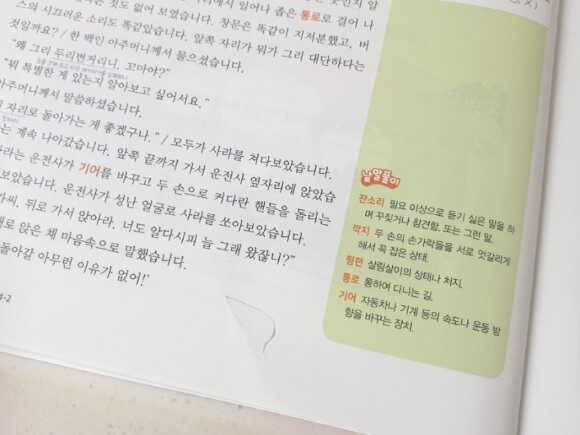 것은 없어 보였습니다.
일어나 좁은 통로로 걸어 나
스의 시끄러운 소리도 똑같았습니다. 창문은 똑같이 지저분했고, 버
것일까요? / 한 백인 아주머니께서 물으셨습니다. 앞쪽 자리가 뭐가 그리 대단하다는
"왜 그리 두리번거리니, 꼬마야?"
"뭐 특별한 게 있는지 알아보고 싶어서요."
아주머니께서 말씀하셨습니다.
자리로 돌아가는 게 좋겠구나." / 모두가 사라를 쳐다보았습니다.
는 계속 나아갔습니다. 앞쪽 끝까지 가서 운전사 옆자리에 앉았습
라는 운전사가 기어를 바꾸고 두 손으로 커다란 핸들을 돌리는
보았습니다. 운전사가 성난 얼굴로 사라를 쏘아보았습니다.
가씨, 뒤로 가서 앉아라. 너도 알다시피 늘 그래 왔잖니?"
대로 앉은 채 마음속으로 말했습니다.
돌아갈 아무런 이유가 없어!'
4-2
낱말풀이
잔소리 필요 이상으로 듣기 싫은 말을 하
며 꾸짖거나 참견함. 또는 그런 말.
깍지 두 손의 손가락들을 서로 엇갈리게
해서 꼭 잡은 상태.
형편 살림살이의 상태나 처지.
통로 통하여 다니는 길.
기어 자동차나 기계 등의 속도나 운동 방
향을 바꾸는 장치.